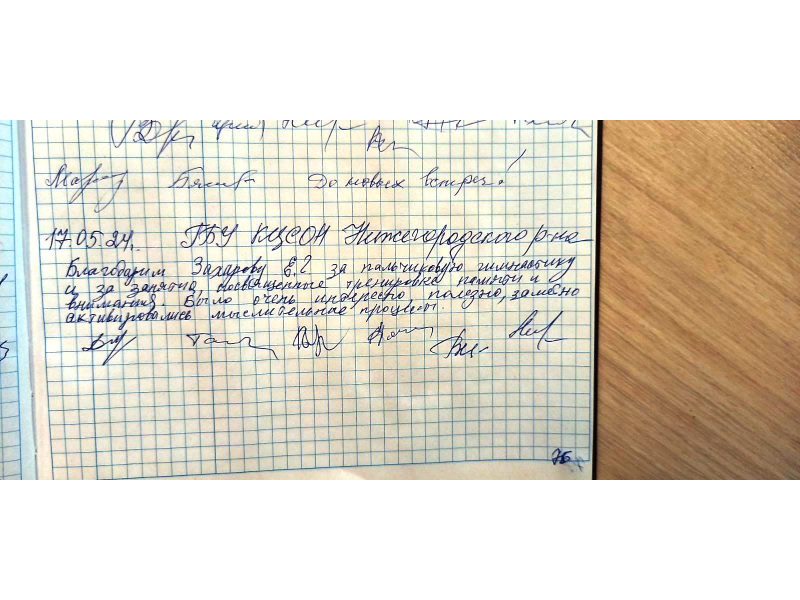 До новых встреч!
17.05.24г. ГБУ КЦСОН Нижегородского р-на
Благодарим Захарову Е.Г. за пальчиковую гимнастику
и за занятия, посвященные тренировке памяти и
внимания. Было очень интересно полезно, заметно
активировались мыслительные процессы.
76